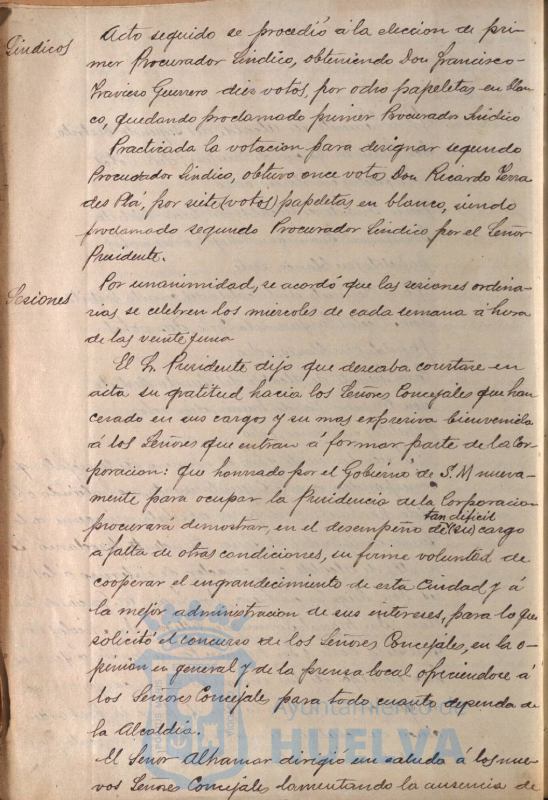 Síndicos
Acto seguido se procedió á la eleccion de pri-
mer Procurador Síndico, obteniendo Don Francisco
Travieso Guerrero diez votos, por ocho papeletas en blan
co, quedando proclamado primer Procurador Síndico
Practicada la votacion para designar segundo
Procurador Síndico, obtuvo once votos Don Ricardo Terra
des Plá, por siete (votos) papeletas en blanco, siendo
proclamado segundo Procurador Síndico por el Señor
Presidente.
Sesiones
Por unanimidad, se acordó que las sesiones ordina-
rias se celebren los miercoles de cada semana á hora
de las veinte y una
El Sr Presidente dijo que deseaba constase en
acta su gratitud hacia los Señores Concejales que han
cesado en sus cargos y su mas expresiva bienvenida
á los Señores que entran á formar parte de la Cor-
poracion: que honrado por el Gobierno de S. M nueva-
mente para ocupar la Presidencia de la Corporacion
procurará demostrar, en el desempeño de tan dificil (su) cargo
a falta de otras condiciones, su firme voluntad de
cooperar el engrandecimiento de esta Ciudad y á
la mejor administracion de sus intereses, para lo que
solicitó el concurso de los Señores Concejales, en la o-
pinion en general y de la prensa local ofreciendose á
los Señores Concejales para todo cuanto dependa de
la Alcaldia.
El Señor Alhamar dirigió un saludo á los nue-
vos Señores Concejales lamentando la ausencia de
Ayuntamiento de
HUELVA